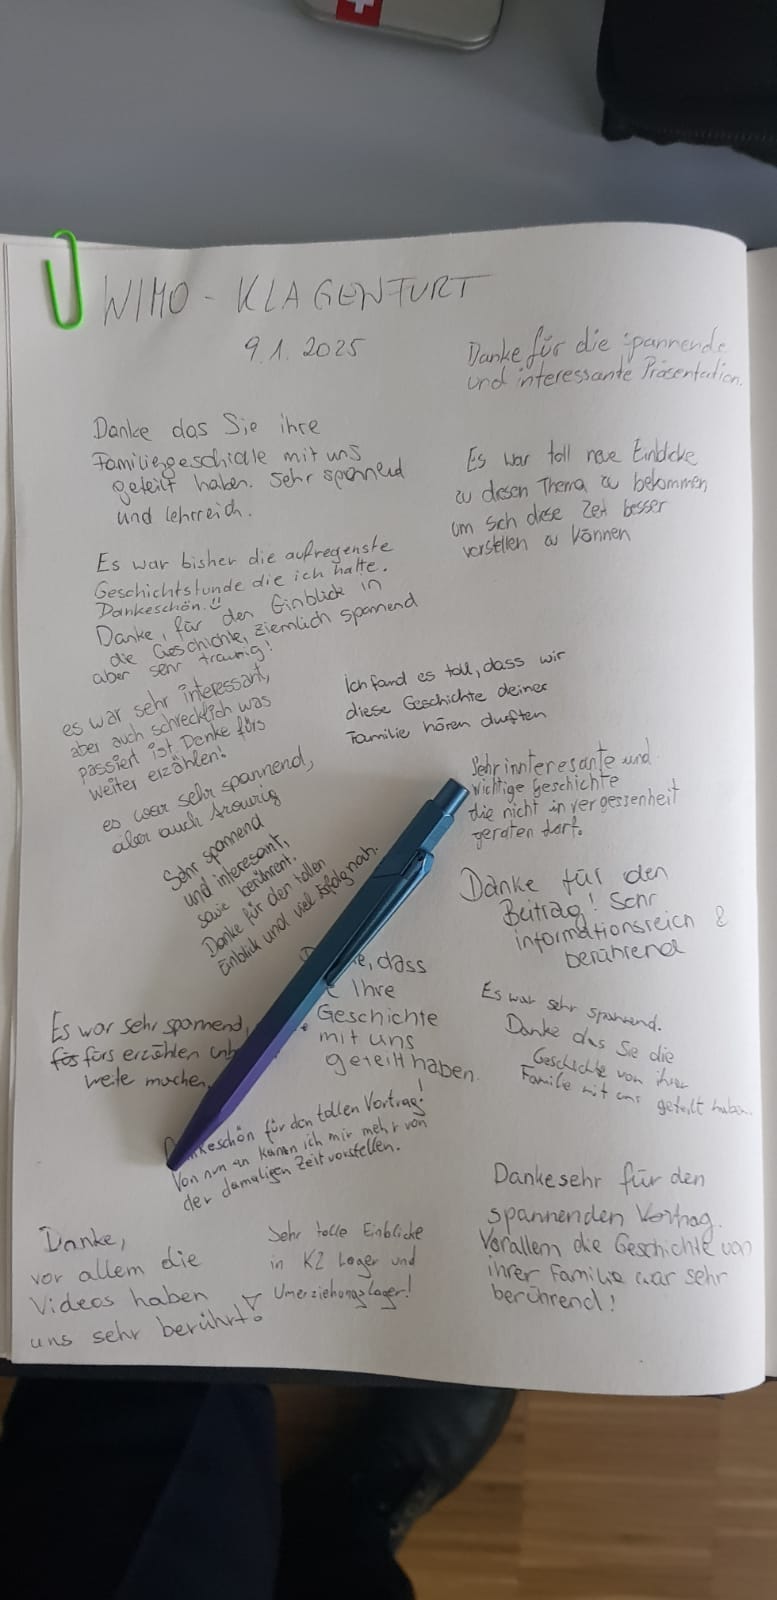 WIMO - KLAGENFURT
9.1.2025
Danke für die spannende
und interessante Präsentation.
Danke das Sie ihre
Familiengeschichte mit uns
geteilt haben. Sehr spannend
und lehrreich.
Es war toll neue Einblicke
zu diesen Thema zu bekommen
um sich diese Zeit besser
vorstellen zu können
Es war bisher die aufregenste
Geschichtstunde die ich hatte.
Dankeschön.
Danke, für den Einblicke in
die Geschichte, ziemlich spannend
aber sehr traurig!
Ich fand es toll, dass wir
diese Geschichte deiner
Familie hören durften
es war sehr interessant,
aber auch schrecklich was
passiert ist. Danke fürs
weiter erzählen!
Sehr innteresante und
wichtige Geschichte
die nicht in vergessenheit
geraten darf.
es war sehr spannend,
aber auch traurig
Sehr spannend
und interesant,
sowie berührent.
Danke für den tollen
Einblick und viel Erfolg noch.
Danke für den
Beitrag! Sehr
informationsreich &
berührend
dass
Ihre
Geschichte
mit uns
geteilt haben.
Es war sehr spannend.
Danke das Sie die
Geschichte von ihrer
Familie mit uns geteilt haben.
Es war sehr spannend,
fürs erzählen
weite machen.
für den tollen Vortrag!
Von nun an kann ich mir mehr von
der damaligen Zeit vorstellen.
Danke sehr für den
spannenden Vortrag.
Vorallem die Geschichte von
ihrer Familie war sehr
berührend!
Danke,
vor allem die
Videos haben
uns sehr berührt!
Sehr tolle Einblicke
in KZ Lager und
Umerziehungslager!